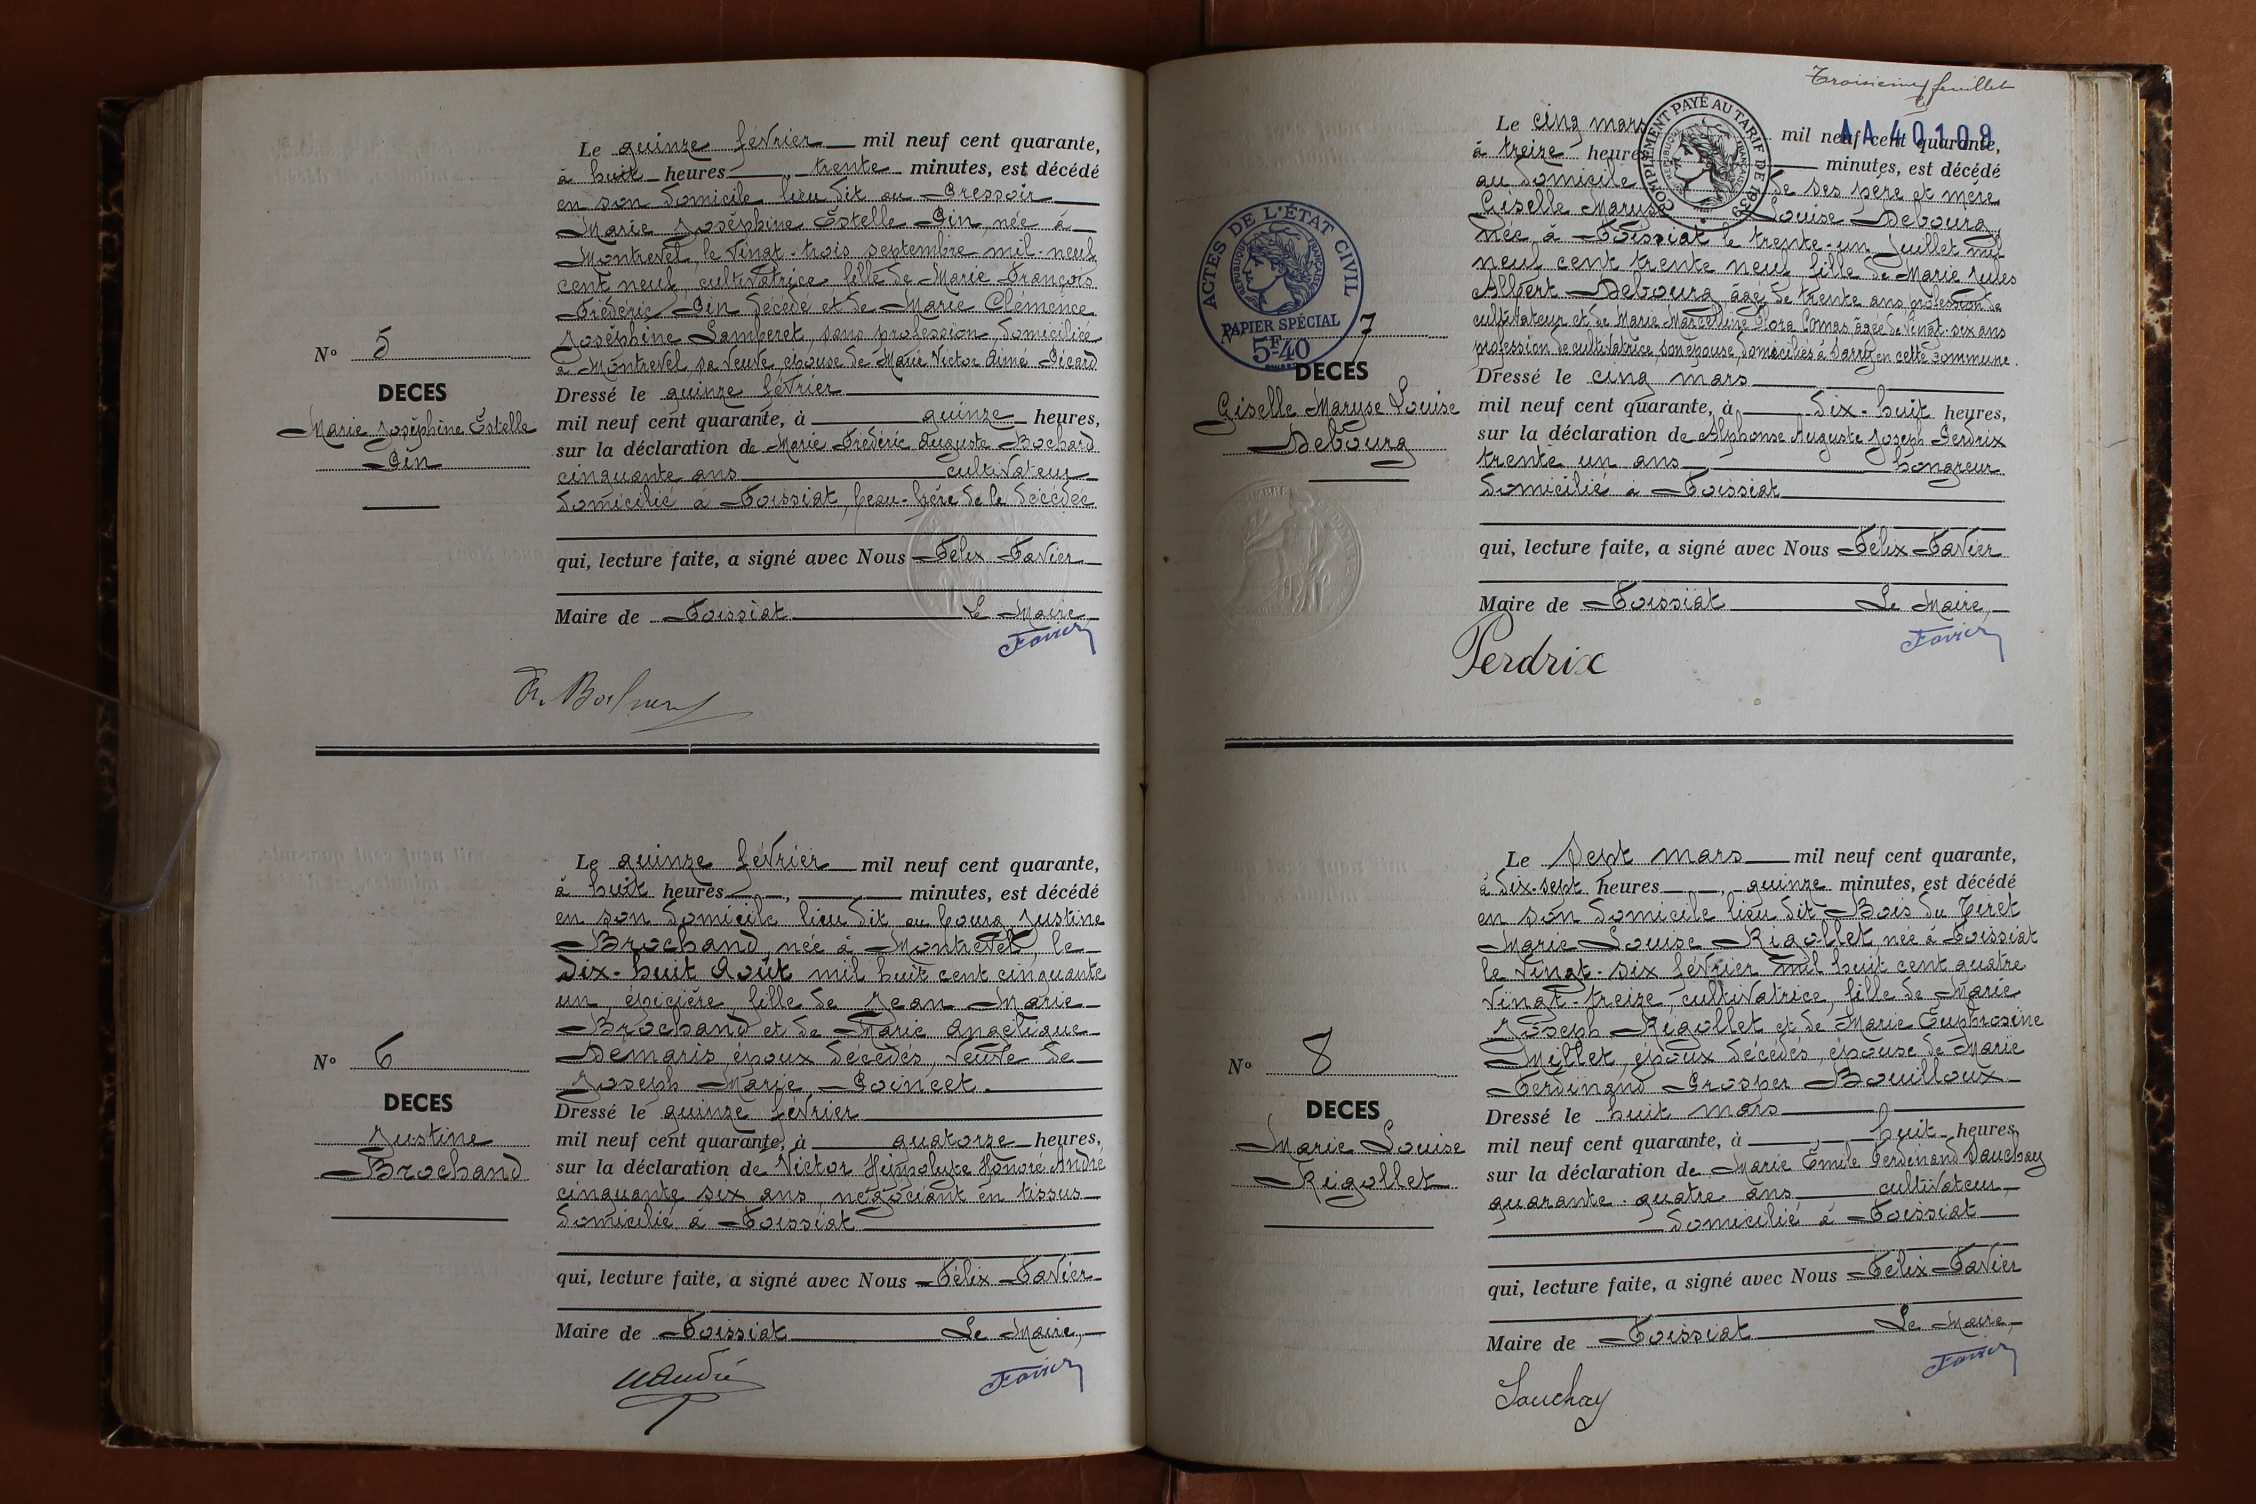 Le quinze février mil neuf cent quarante,
à huit heures, trente minutes, est décédé
en son domicile lieu dit au Pressoir
Marie Joséphine Estelle Pin, née à
Montrevel, le vingt-trois septembre mil-neuf
cent neuf, cultivatrice fille de Marie François
Frédéric Pin décédé et de Marie Clémence
Joséphine Lamberet, sans profession, domiciliée
à Montrevel sa veuve, épouse de Marie Victor Aimé Picard
Dressé le quinze février
mil neuf cent quarante, à quinze heures,
sur la déclaration de Marie Frédéric Auguste Bochard
cinquante ans cultivateur
domicilié à Foissiat, beau-frère de la décédée
qui, lecture faite, a signé avec Nous Félix Favier
Maire de Foissiat Le Maire
Favier
N° 5
DECES
Marie Joséphine Estelle
Pin
Le quinze février mil neuf cent quarante,
à huit heures, minutes, est décédé
en son domicile lieu dit au bourg Justine
Brochand, née à Montrevel, le
dix-huit Août mil huit cent cinquante
un, épicière, fille de Jean Marie
Brochand et de Marie Angélique
Démaris époux décédés, veuve de
Joseph Marie Poincet.
Dressé le quinze février
mil neuf cent quarante, à quatorze heures,
sur la déclaration de Victor Hippolyte Honoré André
cinquante six ans, négociant en tissus
domicilié à Foissiat
qui, lecture faite, a signé avec Nous Félix Favier
Maire de Foissiat Le Maire,
VAndré Favier
N° 6
DECES
Justine
Brochand
Troisième feuillet
AA 40109
COMPLÉMENT PAYÉ AU TARIF DE 1939
RÉPUBLIQUE FRANÇAISE
Le cinq mars mil neuf cent quarante,
à treize heures minutes, est décédé
au domicile de ses père et mère
Giselle Maryse Louise Debourg
née à Foissiat le trente-un juillet mil
neuf cent trente neuf fille de Marie Jules
Albert Debourg âgé de trente ans profession de
cultivateur et de Marie Marcelline Flora Comas âgée de vingt-six ans
profession de cultivatrice, son épouse, domiciliés à Sarry en cette commune.
Dressé le cinq mars
mil neuf cent quarante, à dix-huit heures,
sur la déclaration de Alphonse Auguste Joseph Perdrix
trente un ans hongreur
domicilié à Foissiat
qui, lecture faite, a signé avec Nous Félix Favier
Maire de Foissiat Le Maire,
Perdrix Favier
ACTES DE L'ÉTAT CIVIL
RÉPUBLIQUE FRANÇAISE
PAPIER SPÉCIAL
5F.40
7
DECES
Giselle Maryse Louise
Debourg
Le Sept mars mil neuf cent quarante,
à dix-sept heures, quinze minutes, est décédé
en son domicile lieu dit Bois du Teret
Marie Louise Rigollet née à Foissiat
le vingt-six février mil huit cent quatre
vingt-treize, cultivatrice, fille de Marie
Joseph Rigollet et de Marie Euphrosine
Millet, époux décédés, épouse de Marie
Ferdinand Prosper Bouilloux
Dressé le huit mars
mil neuf cent quarante, à huit heures,
sur la déclaration de Marie Émile Ferdinand Sauchay
quarante-quatre ans cultivateur,
domicilié à Foissiat
qui, lecture faite, a signé avec Nous Félix Favier
Maire de Foissiat Le Maire,
Sauchay Favier
N° 8
DECES
Marie Louise
Rigollet